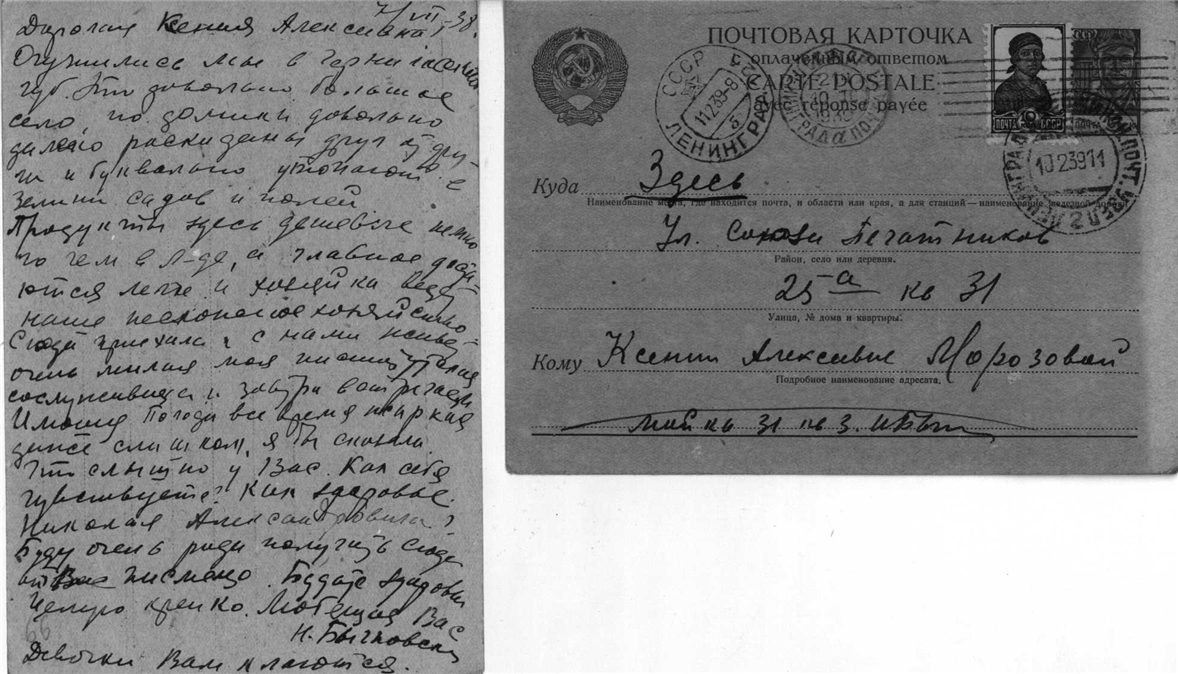 7/VII-38.
Дорогая Ксения Алексевна,
Очутились мы в
губ. Это довольно большое
село, но домики довольно
далеко раскиданы друг от дру-
га и буквально утопают в
зелени садов и полей
Продукты здесь дешевле немно
го чем в Л-де, а главное доста-
ются легче и хозяйка ведет
наше несложное хозяйство
Сюда приехала и с нами
очень милая моя
сослуживица и завтра встречаем
Погода все время жаркая
даже слишком, я бы сказала.
Что слышно у Вас. Как себя
чувствуете? Как здоровье
Николая Александровича?
Буду очень рада получить сюда
от Вас письмецо. Будьте здоровы
Целую крепко. Любящая Вас
Н. Бычковская
Девочки Вам кланяются.
66
ПОЧТОВАЯ КАРТОЧКА
с оплаченным ответом
CARTE POSTALE
avec réponse payée
СССР
11.2.39-8
ЛЕНИНГРАД
ПОЧТА СССР
10.2.39 11
Куда Здесь
Наименование места, где находится почта, и области или края, а для станций — наименование железной дороги
Ул. Союза Печатников
Район, село или деревня.
25а кв 31
Улица, № дома и квартиры.
Кому Ксении Алексевне Морозовой
Подробное наименование адресата.
кв 31